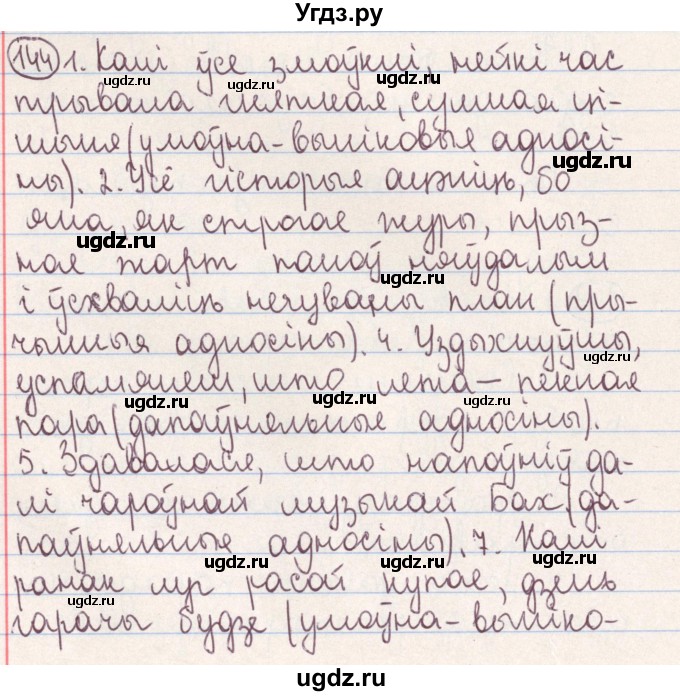 Угдз.ру
144 1. Калі ўсе змоўклі, нейкі час
трывала сумная ці-
шыня (умоўна-выніковыя адносі-
ны). 2. Усё гісторыя ацэніць, бо
яна, як строгае журы, прыз-
нае жарт паноў няўдалым
і ўсхваліць нечуваны план (пры-
чынныя адносіны). 4. Уздыхнуўшы,
успамянем, што лета — пекная
пара (дапаўняльныя адносіны).
5. Здавалася, што напоўніў да-
лі чароўнай музыкай Бах (да-
паўняльныя адносіны). 7. Калі
ранак луг расой купае, дзень
гарачы будзе (умоўна-выніко-
ugdz.ru